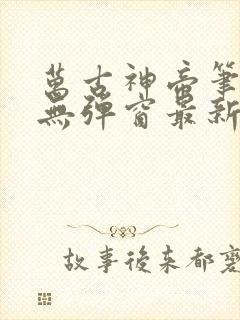 萬古神帝筆
無彈窗最新
故事後來都